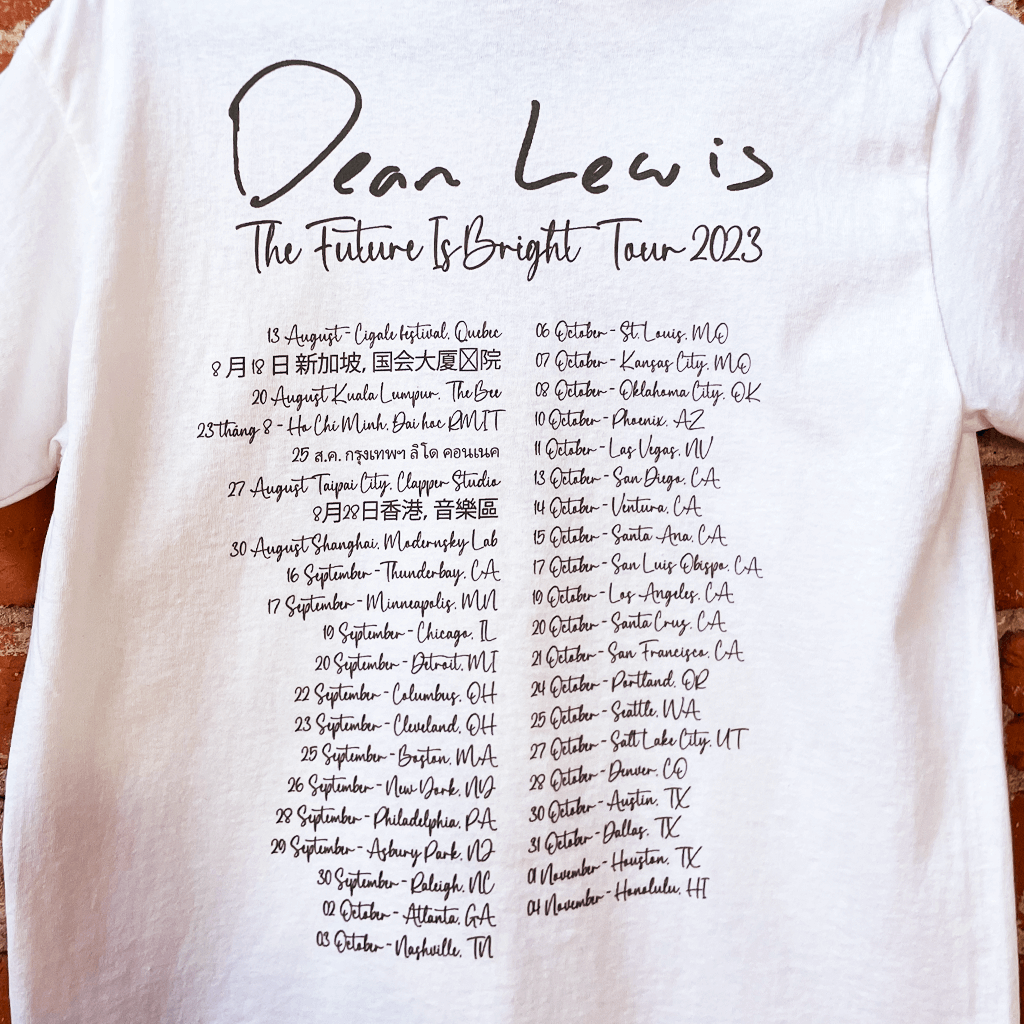 Dean Lewis
The Future Is Bright Tour 2023
13 August - Cigale festival, Quebec
8月18日新加坡, 国会大厦院
20 August Kuala Lumpur, The Bee
23 tháng 8 - Ho Chi Minh, Đai hoc RMIT
25 ส.ค. กรุงเทพฯ ลิโด คอนเนค
27 August Taipai City, Clapper Studio
8月28日香港, 音樂區
30 August Shanghai, Modernsky Lab
16 September - Thunderbay, CA
17 September - Minneapolis, MN
19 September - Chicago, IL
20 September - Detroit, MI
22 September - Columbus, OH
23 September - Cleveland, OH
25 September - Boston, MA
26 September - New York, NY
28 September - Philadelphia, PA
29 September - Asbury Park, NJ
30 September - Raleigh, NC
02 October - Atlanta, GA
03 October - Nashville, TN
06 October - St. Louis, MO
07 October - Kansas City, MO
08 October - Oklahoma City, OK
10 October - Phoenix, AZ
11 October - Las Vegas, NV
13 October - San Diego, CA
14 October - Ventura, CA
15 October - Santa Ana, CA
17 October - San Luis Obispo, CA
19 October - Los Angeles, CA
20 October - Santa Cruz, CA
21 October - San Francisco, CA
24 October - Portland, OR
25 October - Seattle, WA
27 October - Salt Lake City, UT
28 October - Denver, CO
30 October - Austin, TX
31 October - Dallas, TX
01 November - Houston, TX
04 November - Honolulu, HI